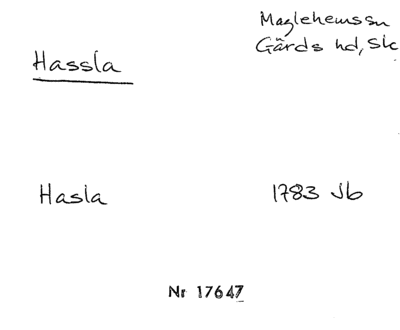 Maglehemssn
Gärds hd, Sk
Hassla
Hasla 1783 Jb
Nr 17647